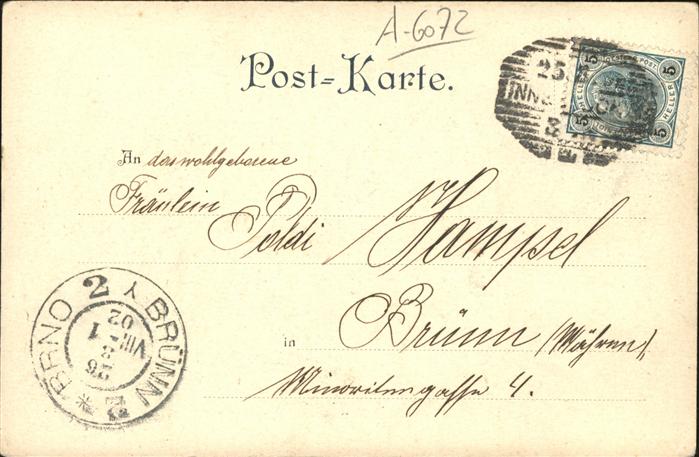 A-6072
Post=Karte.
5 5
HELLER HELLER
5 5
23.
INNS
An daswohlgeborene
Fräulein
Poldi Hampel
in Brünn (Mähren)
Minoritengasse 4.
BRNO 2 BRÜNN
26
8
VIII 1
02